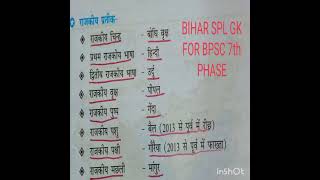 राजकीय प्रतीक-
राजकीय चिन्ह - बोधि वृक्ष
प्रथम राजकीय भाषा - हिन्दी
द्वितीय राजकीय भाषा - उर्दू
राजकीय वृक्ष - पीपल
राजकीय पुष्प - गेंदा
राजकीय पशु - बैल (2013 से पूर्व में रीछ)
राजकीय पक्षी - गौरैया (2013 से पूर्व में फाख्ता)
राजकीय मछली - मांगुर
BIHAR SPL GK
FOR BPSC 7th
PHASE
InShOt